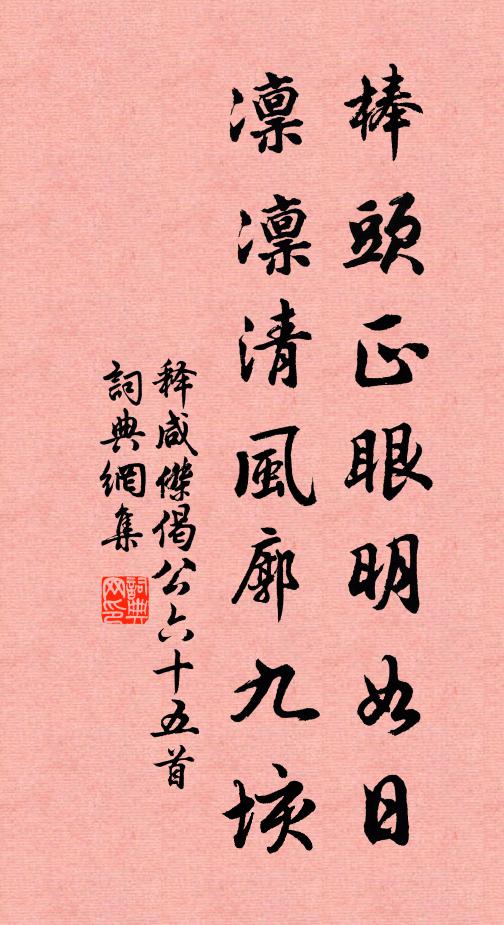 棒頭正眼明如日
凛凛清風廓九垓
释咸傑偈公六十五首
詞典網集
詞典網印